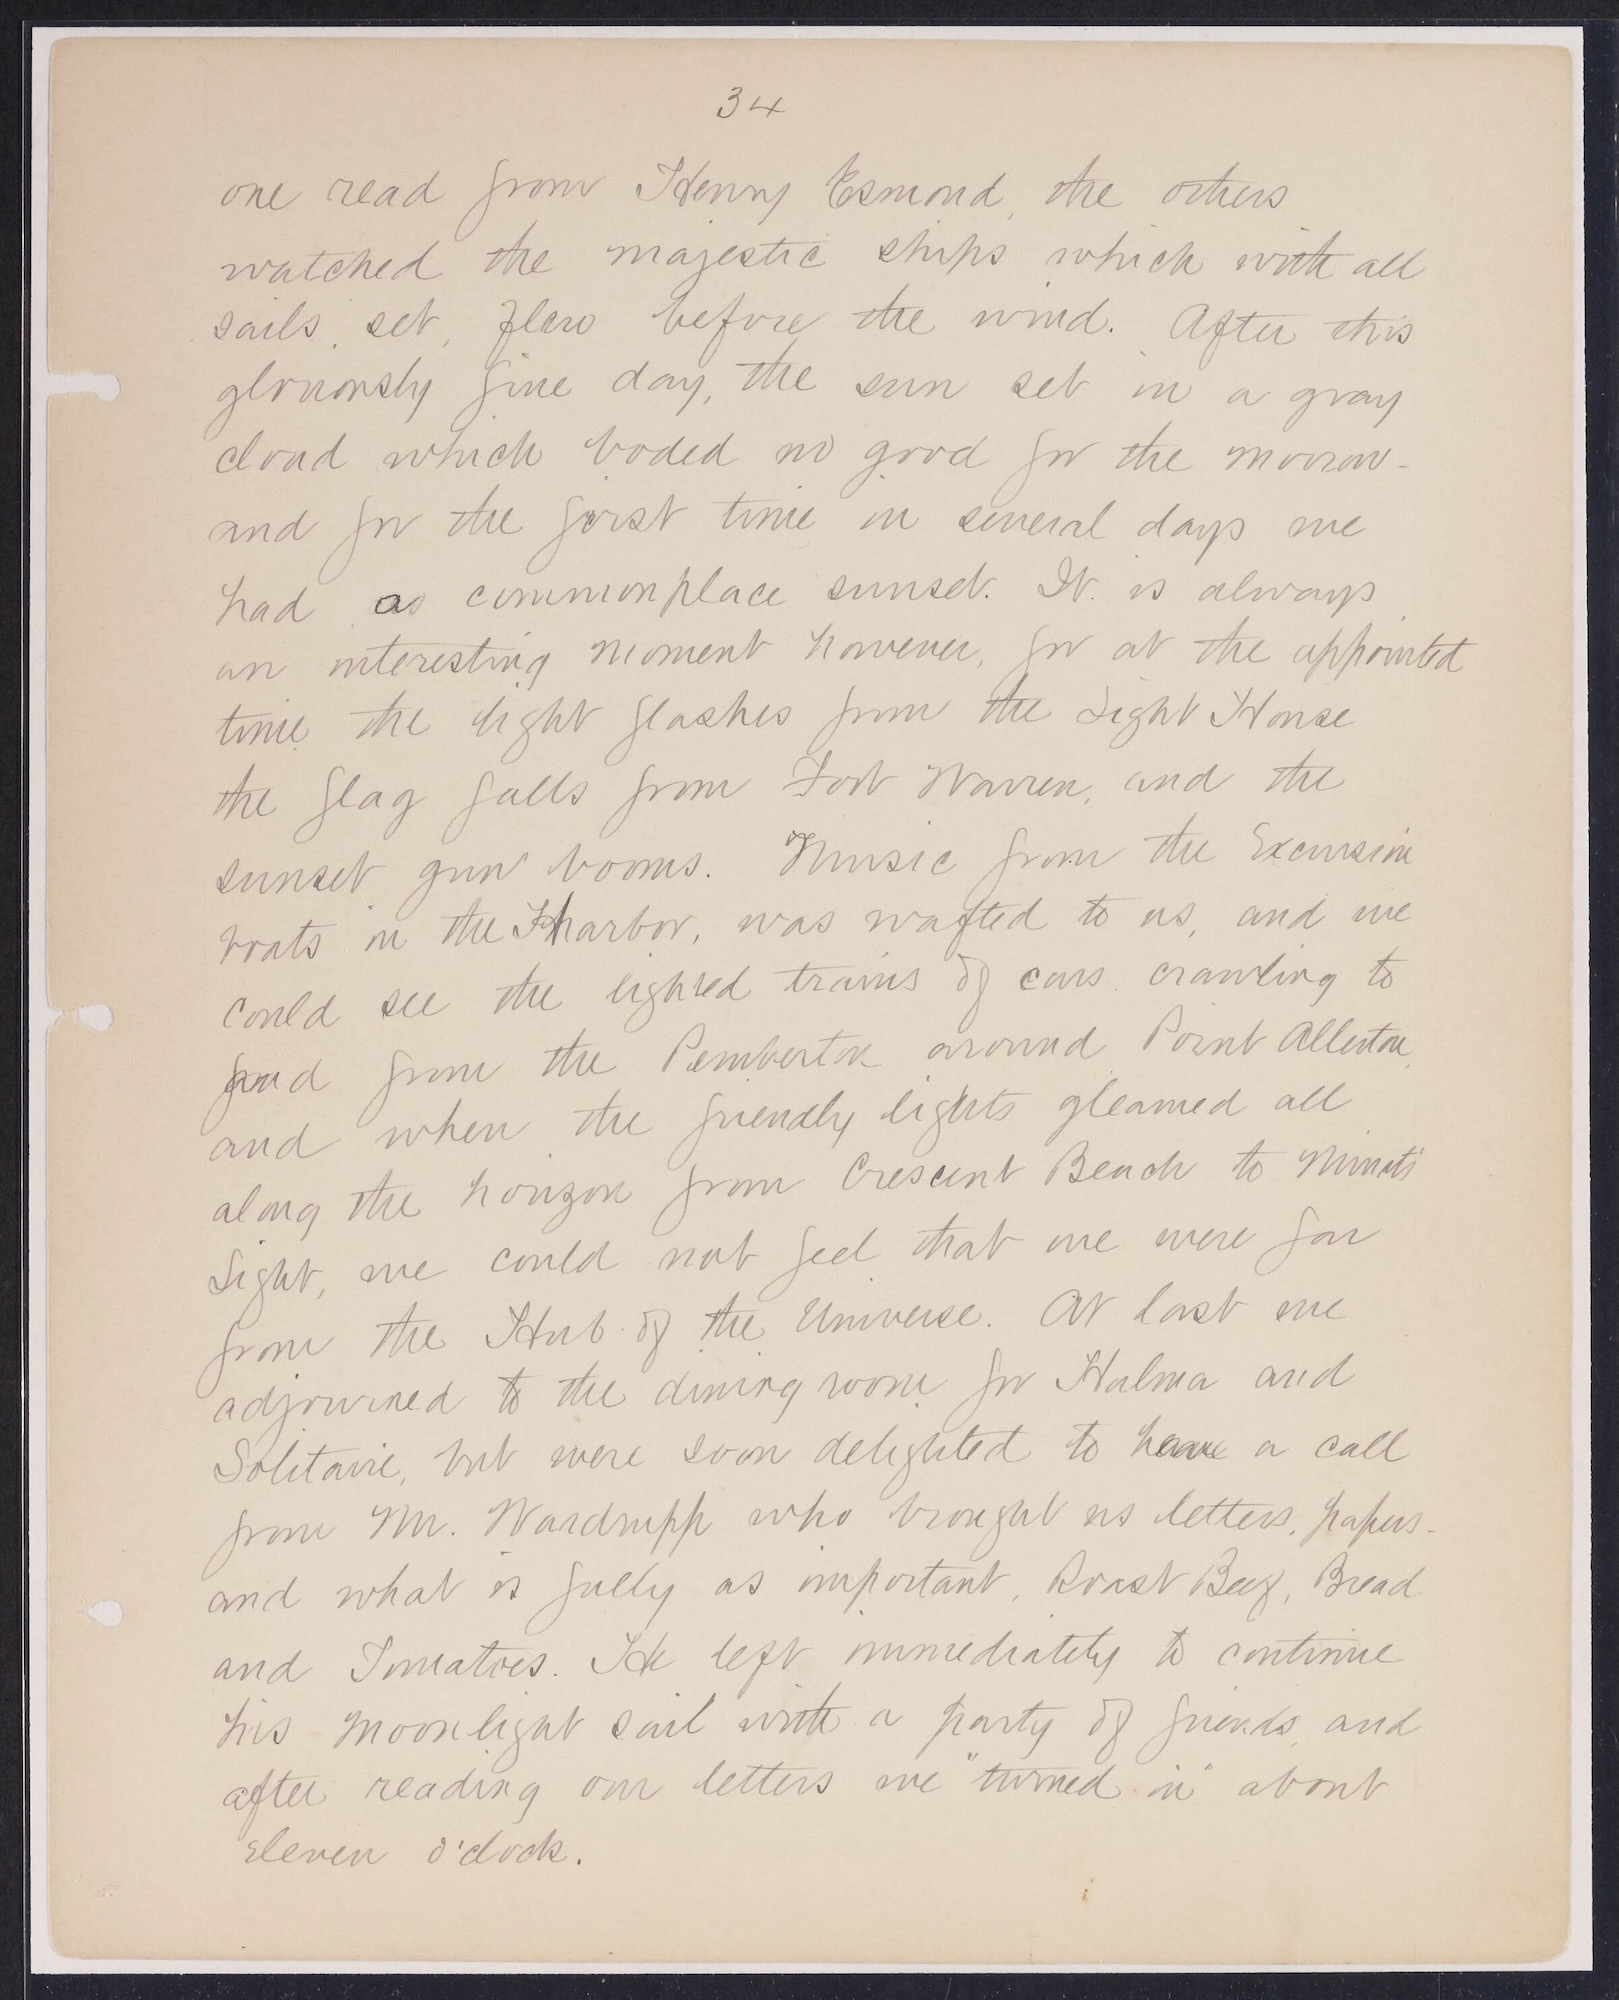 34
one read from Henry Esmond, the others
watched the majestic ships which with all
sails set, flew before the wind. After this
gloriously fine day, the sun set in a gray
cloud which boded no good for the morrow -
and for the first time in several days we
had a commonplace sunset. It is always
an interesting moment however, for at the appointed
time the light flashes from the Light House
the flag falls from Fort Warren, and the
sunset gun booms. Music from the Excursion
boats in the harbor, was wafted to us, and we
could see the lighted trains of cars crawling to
and from the Pemberton around Point Allerton,
and when the friendly lights gleamed all
along the horizon from Crescent Beach to Minots
Light, we could not feel that we were far
from the Hub of the Universe. At last we
adjourned to the dining room for Halma and
Solitaire, but were soon delighted to have a call
from Mr. Wardrupp who brought us letters, papers -
and what is fully as important, Roast Beef, Bread
and Tomatoes. He left immediately to continue
his moonlight sail with a party of friends, and
after reading our letters we "turned in" about
eleven o'clock.